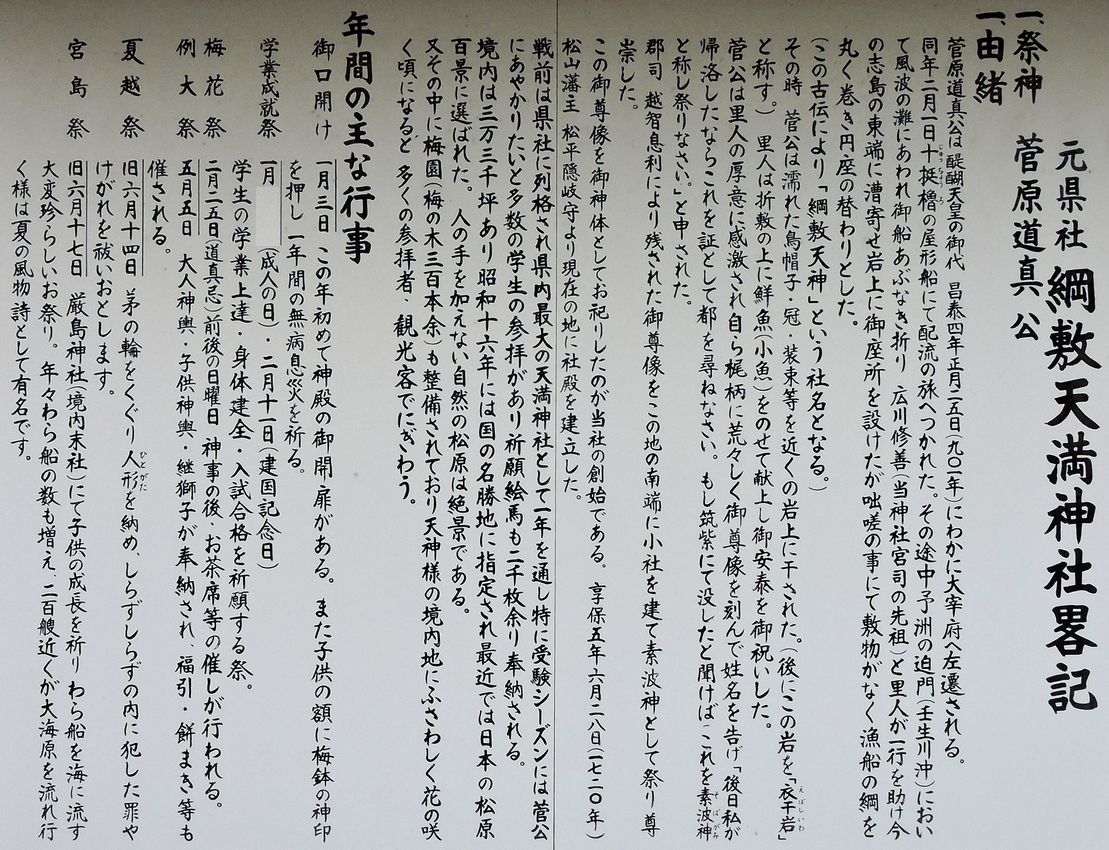 元県社 綱敷天満神社畧記
一、祭神 菅原道真公
一、由緒
菅原道真公は醍醐天皇の御代 昌泰四年正月二五日(九〇一年)にわかに大宰府へ左遷される。
同年二月一日十挺櫓の屋形船にて配流の旅へつかれた。その途中予洲の迫門(壬生川沖)におい
て風波の灘にあわれ御船あぶなき折り 広川修善(当神社宮司の先祖)と里人が一行を助け今
の志島の東端に漕寄せ岩上に御座所を設けたが咄嗟の事にて敷物がなく漁船の綱を
丸く巻き円座の替わりとした。
(この古伝により「綱敷天神」という社名となる。)
その時 菅公は濡れた烏帽子・冠 装束等を近くの岩上に干された。(後にこの岩を「衣干岩」
と称す。) 里人は折敷の上に鮮魚(小魚)をのせて献上し御安泰を御祝いした。
菅公は里人の厚意に感激され自ら梶柄に荒々しく御尊像を刻んで姓名を告げ「後日私が
帰洛したならこれを証として都を尋ねなさい。もし筑紫にて没したと聞けば これを素波神
と称し祭りなさい。」と申された。
郡司 越智息利により残された御尊像をこの地の南端に小社を建て素波神として祭り尊
崇した。
この御尊像を御神体としてお祀りしたのが当社の創始である。享保五年六月二八日(一七二〇年)
松山藩主 松平隠岐守より現在の地に社殿を建立した。
戦前は県社に列格され県内最大の天満神社として一年を通し特に受験シーズンには菅公
にあやかりたいと多数の学生の参拝があり祈願絵馬も二千枚余り奉納される。
境内は三万三千坪あり昭和十六年には国の名勝地に指定され最近では日本の松原
百景に選ばれた。人の手を加えない自然の松原は絶景である。
又その中に梅園(梅の木三百本余)も整備されており天神様の境内地にふさわしく花の咲
く頃になると 多くの参拝者、観光客でにぎわう。
年間の主な行事
御口開け 一月三日 この年初めて神殿の御開扉がある。また子供の額に梅鉢の神印
を押し一年間の無病息災を祈る。
学業成就祭 一月 (成人の日)・二月十一日(建国記念日)
学生の学業上達・身体建全・入試合格を祈願する祭。
梅花祭 二月二五日(道真忌)前後の日曜日 神事の後、お茶席等の催しが行われる。
例大祭 五月五日 大人神輿・子供神輿・継獅子が奉納され、福引・餅まき等も
催される。
夏越祭 旧六月十四日 茅の輪をくぐり 人形を納め、しらずしらずの内に犯した罪や
けがれを祓いおとします。
宮島祭 旧六月十七日 厳島神社(境内末社)にて子供の成長を祈り わら船を海に流す
大変珍らしいお祭り。年々わら船の数も増え、二百艘近くが大海原を流れ行
く様は夏の風物詩として有名です。